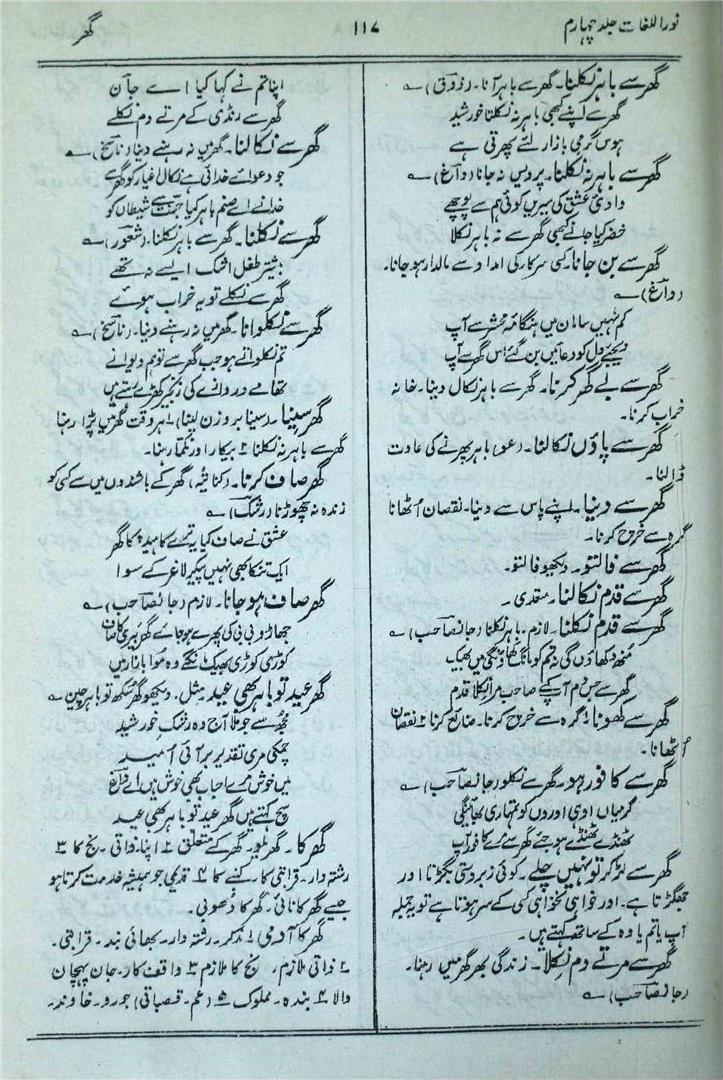 نور اللغات جلد چہارم
۱۱۷
گھر
گھر سے باہر نکلنا۔ گھر سے باہر آنا۔ (ذوق) ؎
گھر سے اپنے کبھی باہر نہ نکلتا خورشید
ہوس گرمی بازار لئے پھرتی ہے
گھر سے باہر نہ نکلنا۔ پردیس نہ جانا (داغ) ؎
وادیٔ عشق کی سیریں کوئی ہم سے پوچھے
خضر کیا جانے کبھی گھر سے نہ باہر نکلا
گھر سے بن جانا۔ کسی سرکار کی امداد سے مالدار ہو جانا۔
(داغ) ؎
کم نہیں سامان میں ہنگامۂ محشر سے آپ
دیجیے دل کو دعائیں بن گئے اس گھر سے آپ
گھر سے بے گھر کرنا۔ گھر سے باہر نکال دینا۔ خانہ
خراب کرنا۔
گھر سے پاؤں نکالنا۔ (عو) باہر پھرنے کی عادت
ڈالنا۔
گھر سے دینا۔ اپنے پاس سے دینا۔ نقصان اُٹھانا
گرہ سے خرچ کرنا۔
گھر سے فالتو۔ دیکھو فالتو۔
گھر سے قدم نکالنا۔ متعدی۔
گھر سے قدم نکلنا۔ لازم۔ باہر نکلنا (جانصاحب) ؎
منھ دکھاؤں گی نہ تم کو مانگ کھاؤنگی میں بھیک
گھر سے جس دم آپکے صاحب مرا نکلا قدم
گھر سے کھونا ۱ گرہ سے خرچ کرنا۔ ضائع کرنا ۲ نقصان
اُٹھانا۔
گھر سے کافور ہو۔ گھر سے نکلو (جانصاحب) ؎
گرمیاں اوی اوروں کو تمہاری بھائینگی
ٹھنڈے ٹھنڈے ہو جئے گھر سے مرے کافور آپ
گھر سے لڑ کر تو نہیں چلے۔ کوئی زبردستی بگڑتا اور
جھگڑتا ہے۔ اور خواہی نخواہی کسی کے سر ہوتا ہے تو یہ جملہ
آپ یا تم یا وہ کے ساتھ کہتے ہیں۔
گھر سے مرتے دم نکلا۔ زندگی بھر گھر میں رہنا۔
(جانصاحب) ؎
اپنا تم نے کہا کیا اے جان
گھر سے رنڈی کے مرتے دم نکلے
گھر سے نکالنا۔ گھر میں نہ رہنے دینا (ناسخ) ؎
جو دعوائے خدائی ہے نکال اغیار کو گھر سے
خدا نے اے صنم باہر کیا جنت سے شیطاں کو
گھر سے نکلنا۔ گھر سے باہر نکلنا۔ (شعور) ؎
بیشتر طفل اشک ایسے نہ تھے
گھر سے نکلے تو یہ خراب ہوے
گھر سے نکلوانا۔ گھر میں نہ رہنے دینا۔ (ناسخ) ؎
تم نکلواتے ہو جب گھر سے تو ہم دیوانے
تھامے دروازے کی زنجیر کھڑے رہتے ہیں
گھر سینا۔ (سینا بر وزن لینا) ۱ ہر وقت گھر میں پڑا رہنا
گھر سے باہر نہ نکلنا ۲ بیکار اور نکما رہنا۔
گھر صاف کرنا۔ (کنایۃً) گھر کے باشندوں میں سے کسی کو
زندہ نہ چھوڑنا (رشک) ؎
عشق نے صاف کیا تیرے کا ہیدہ کا گھر
ایک تنکا بھی نہیں پیکر لاغر کے سوا
گھر صاف ہو جانا۔ لازم (جانصاحب) ؎
جھاڑو بی بی کی پھرے ہو جائے گھر پیری کا صاف
کوڑی کوڑی بھیک مانگے وہ موا بازار میں
گھر عید تو باہر بھی عید۔ مثل۔ دیکھو گھر سکھ تو باہر چین ؎
مجھ سے جو ملا آج وہ رشک خورشید
چمکی مری تقدیر بر آئی امید
میں خوش مرے احباب بھی خوش ہیں اے داغ
سچ کہتے ہیں گھر عید تو باہر بھی عید
گھر کا۔ گھریلو۔ گھر کے متعلق ۲ اپنا۔ ذاتی۔ نج کا ۳
رشتہ دار۔ قرابتی کا۔ کنبے کا ۴ قدیمی جو ہمیشہ خدمت کرتا ہو
جیسے گھر کا نائی۔ گھر کا دھوبی۔
گھر کا آدمی ۱ مذکر۔ رشتہ دار۔ بھائی بند۔ قرابتی۔
۲ ذاتی ملازم۔ نج کا ملازم ۳ واقف کار۔ جان پہچان
والا ۴ بندہ۔ مملوک ۵ (عم۔ قصباتی) جورو۔ خاوند۔